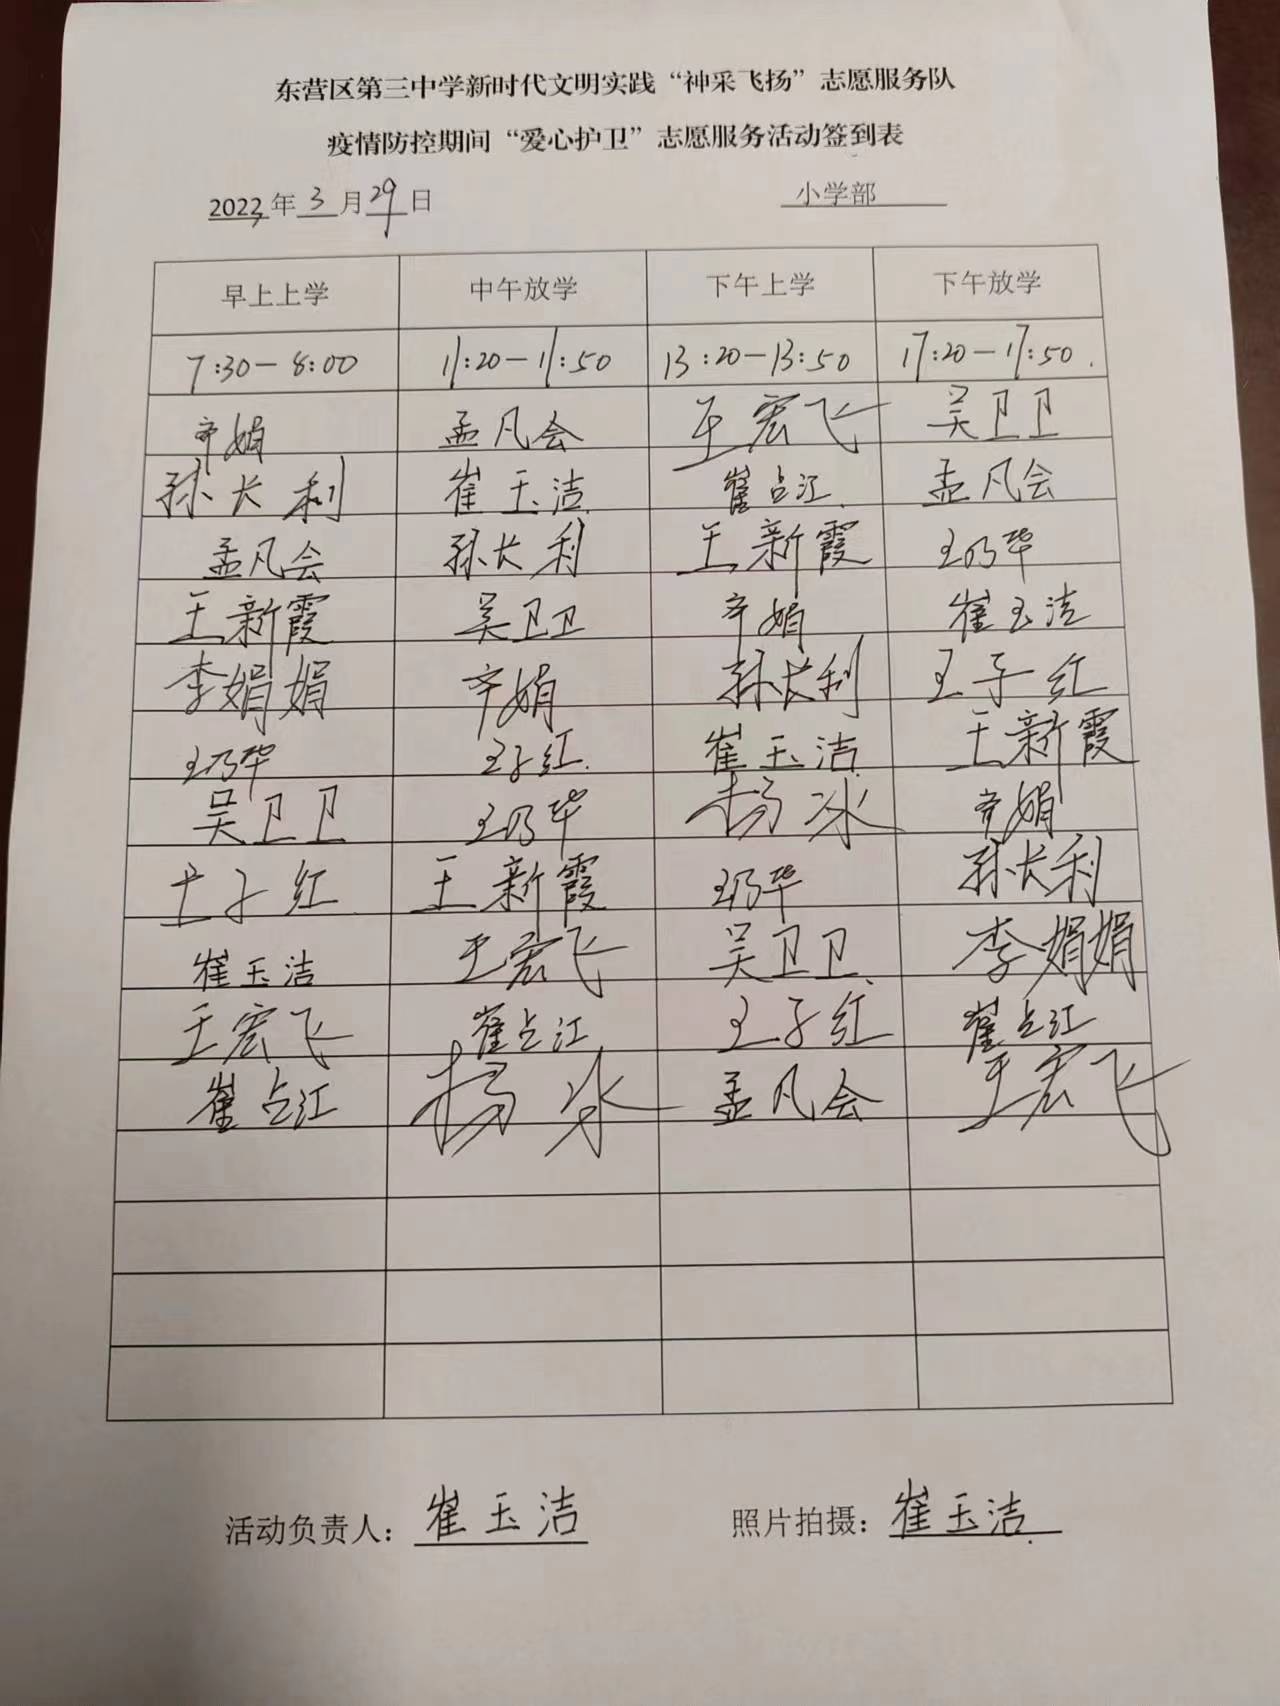 东营区第三中学新时代文明实践“神采飞扬”志愿服务队
疫情防控期间“爱心护卫”志愿服务活动签到表
2022年3月29日 小学部
早上上学 中午放学 下午上学 下午放学
7:30-8:00 11:20-11:50 13:20-13:50 17:20-17:50.
辛娟 孟凡会 王宏飞 吴卫卫
孙长利 崔玉洁 崔占江 孟凡会
孟凡会 孙长利 王新霞 王乃华
王新霞 吴卫卫 辛娟 崔玉洁
李娟娟 辛娟 孙长利 王子红
王乃华 王子红 崔玉洁 王新霞
吴卫卫 王乃华 杨冰 辛娟
王子红 王新霞 王乃华 孙长利
崔玉洁 王宏飞 吴卫卫 李娟娟
王宏飞 崔占江 王子红 崔占江
崔占江 杨冰 孟凡会 王宏飞
活动负责人：崔玉洁 照片拍摄：崔玉洁